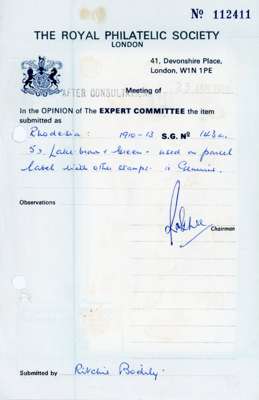 Nº 112411
THE ROYAL PHILATELIC SOCIETY
LONDON
41, Devonshire Place,
London, W1N 1PE
Meeting of
AFTER CONSULTATION
In the OPINION of The EXPERT COMMITTEE the item
submitted as
Rhodesia: 1910-13 S.G. Nº
5s. Lake-brown & Green - used on parcel
label with other stamps is Genuine.
Observations
Chairman
Submitted by Ritchie Bodily.